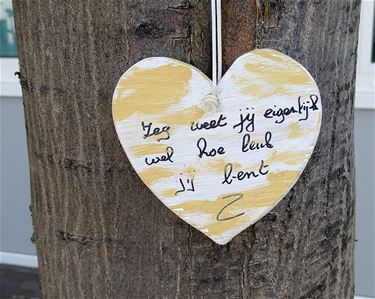 Zeg weet jij eigenlijk
wel hoe leuk
jij bent